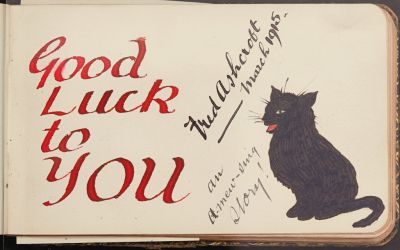 Good
Luck
to
YOU
Fred Ashcroft
March 1915.
an
A-mew-sing
Story!